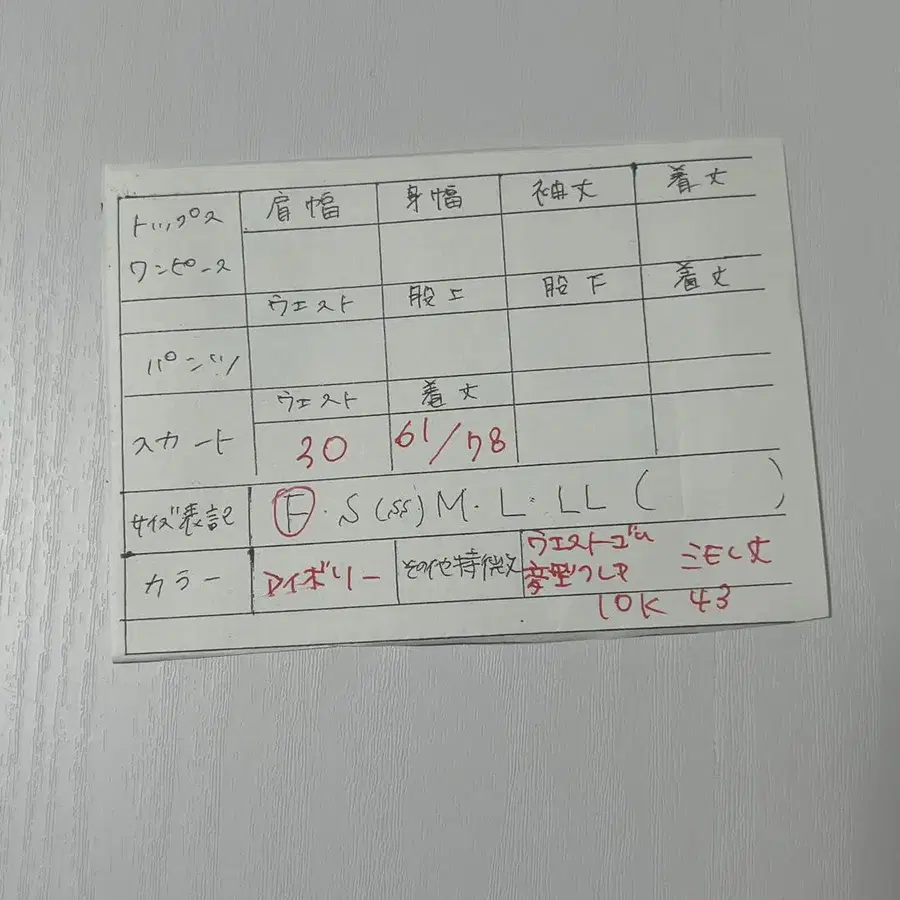 トップス 肩幅 身幅 袖丈 着丈
ワンピース
ウエスト 股上 股下 着丈
パンツ
ウエスト 着丈
スカート 30 61/78
サイズ表記 F・S(SS)M・L・LL( )
カラー アイボリー その他特徴 ウエストゴム ミモレ丈
変型フレア
10K 43